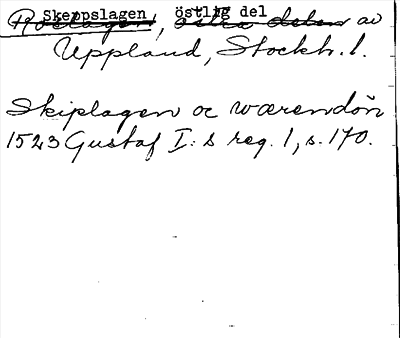 Skeppslagen, östlig del av
Uppland, Stockh. l.
Skiplagen oc wærendön
1523 Gustaf I:s reg. 1, s. 170.